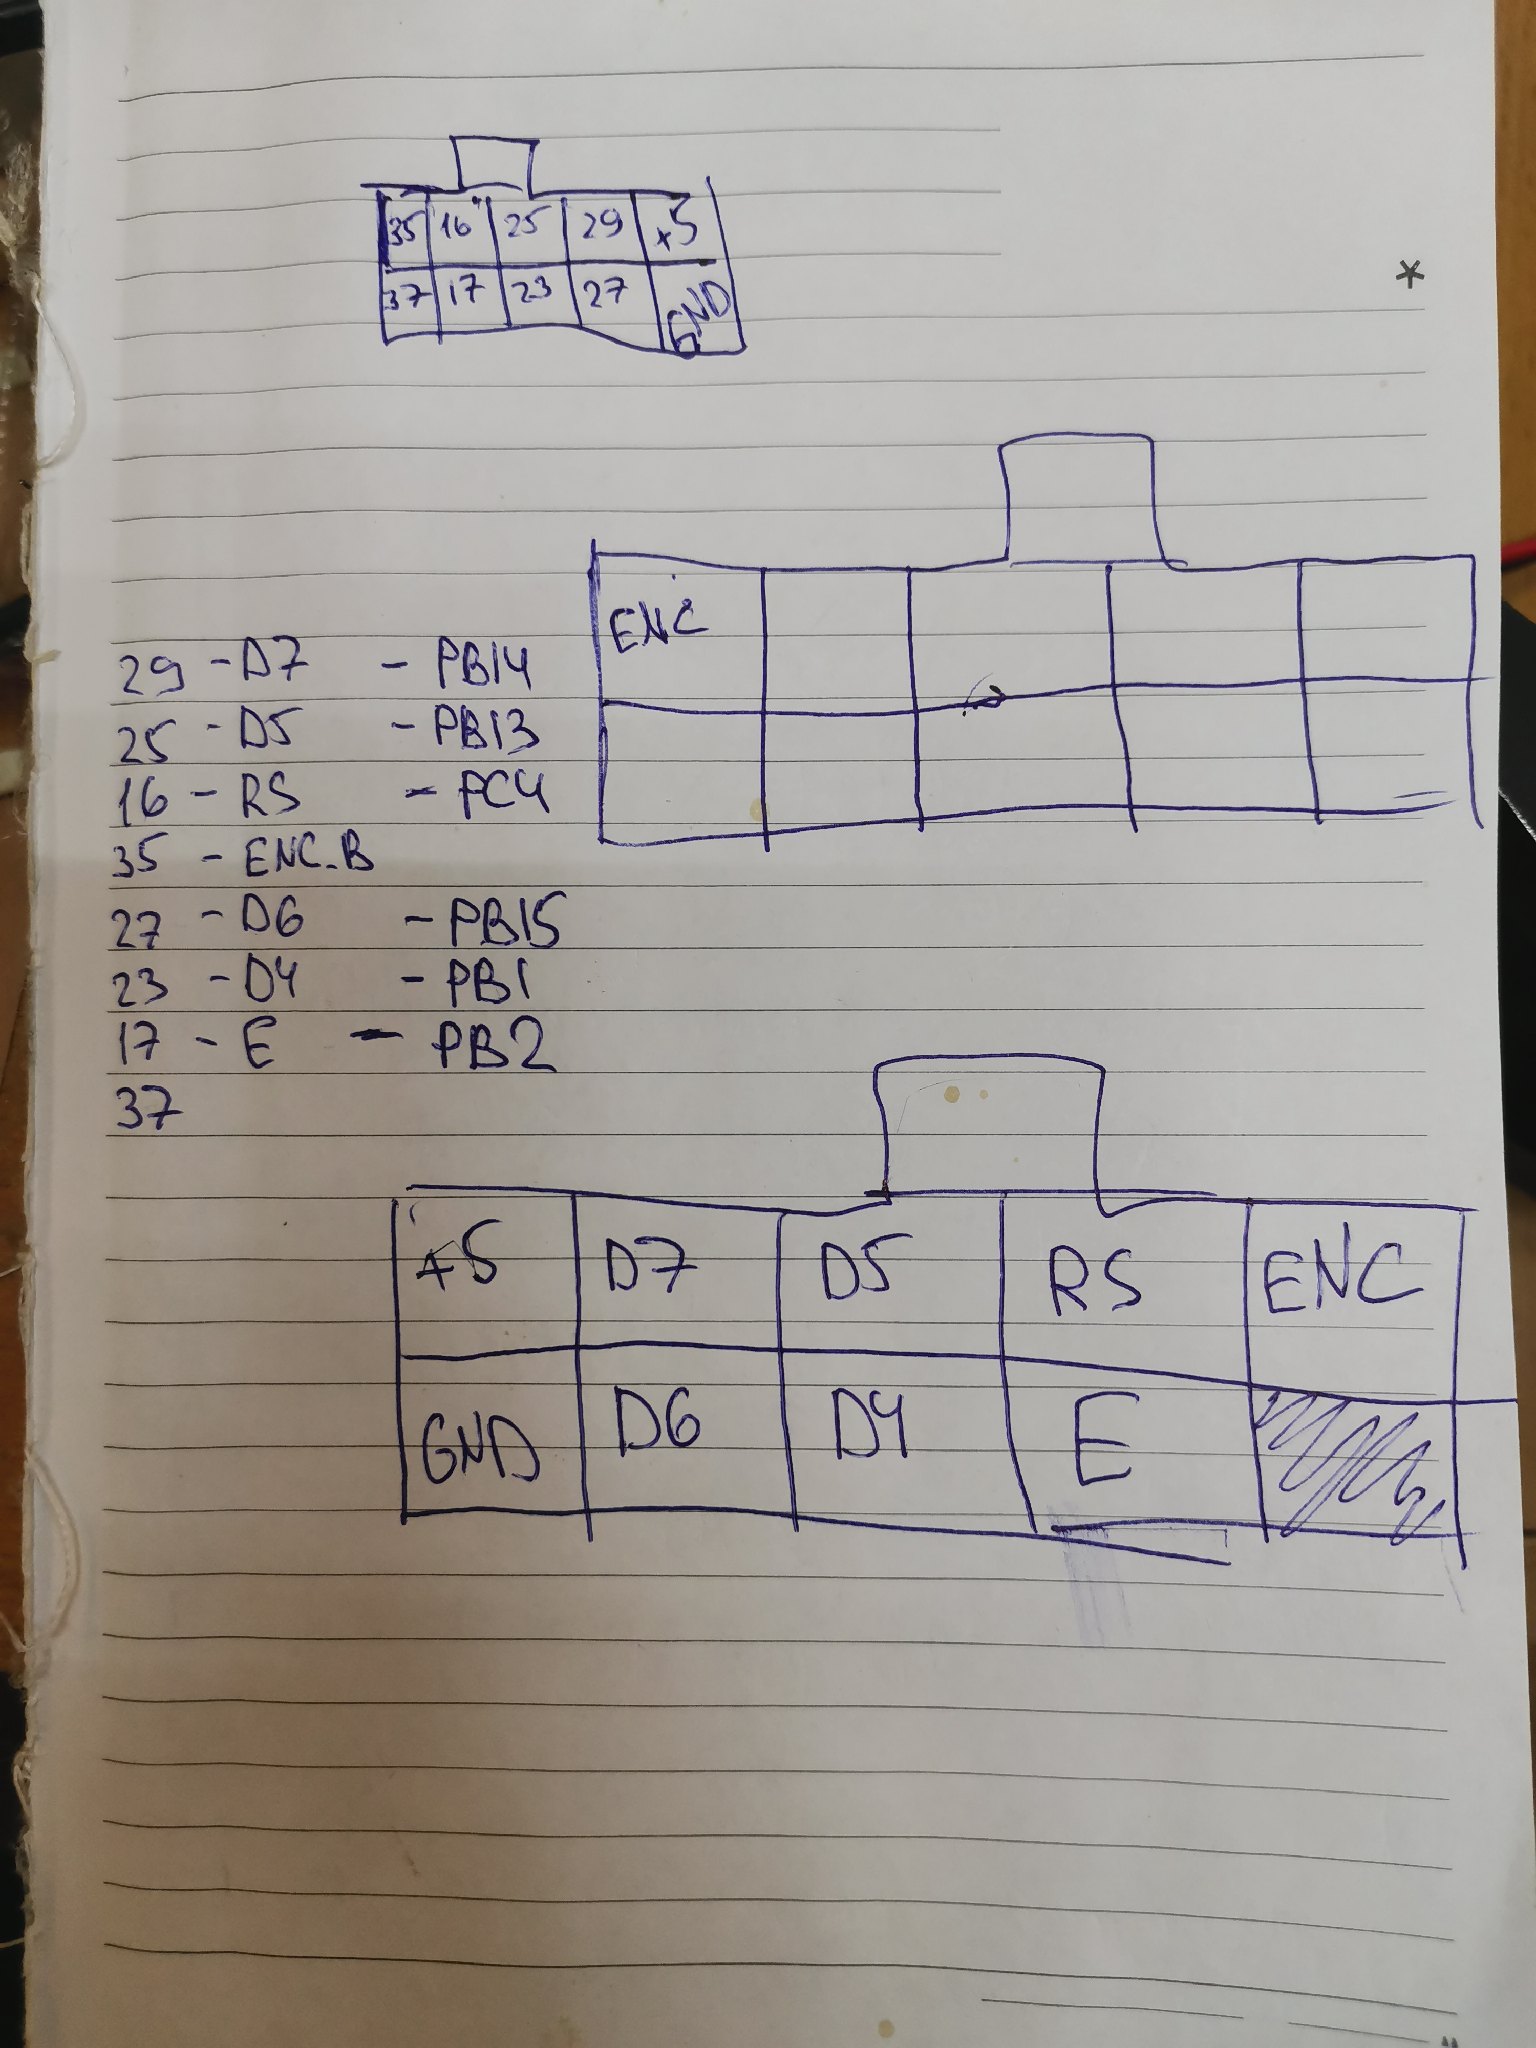 35 16 25 29 +5
37 17 23 27 GND
*
ENC
29 - D7 - PB14
25 - D5 - PB13
16 - RS - PC4
35 - ENC.B
27 - D6 - PB15
23 - D4 - PB1
17 - E - PB2
37
+5 D7 D5 RS ENC
GND D6 D4 E